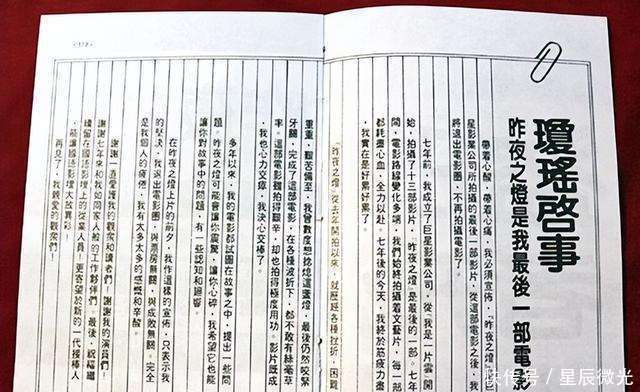 瓊瑤啓事
昨夜之燈是我最後一部電影
帶着心酸，帶着心痛，我必須宣佈，「昨夜之燈」是巨
星影業公司所拍攝的最後一部影片，從這部電影之後，我
將退出電影圈，不再拍攝電影了。
七年前，我成立了巨星影業公司，從「我是一片雲」開
始，拍攝了十三部影片，「昨夜之燈」是最後的一部。七年
間，電影路線變化多端，我們始終拍攝着文藝片，每一部
都耗盡心血，全力以赴。七年後的今天，我終於筋疲力盡
，我實在是好累好累了。
「昨夜之燈」從去年開拍以來，就歷經各種挫折，困難
重重，艱苦備至，我曾數度想捻熄這盞燈，最後仍然咬緊
牙關，完成了這部電影，在各種波折下，都不敢有絲毫草
率。這部電影雖拍得艱辛，却也拍得極度用功。影片旣成
，我也心力交瘁，我決心交棒了。
多年以來，我的電影都試圖在故事之中，提出一些問
題。昨夜之燈可能會讓你震驚，讓你心碎，我希望它也能
讓你對故事中的問題，有一些認知和迴響。
在昨夜之燈上片的前夕，我作這樣的宣佈，只表示我
的堅決，我退出電影圈，與票房無關，與成敗無關，完全
是我個人的疲倦，我有太多太多的感慨和辛酸。
謝謝一直愛護我的觀衆和讀者們。謝謝我的演員們！
謝謝七年來和我如同家人般的工作夥伴們。最後，祝福繼
續留在國語影壇上的從業人員！更寄望於新的一代接棒人
，能讓國語影壇大放異彩！
再見了，我親愛的觀衆們！
快传号 / 星辰微光